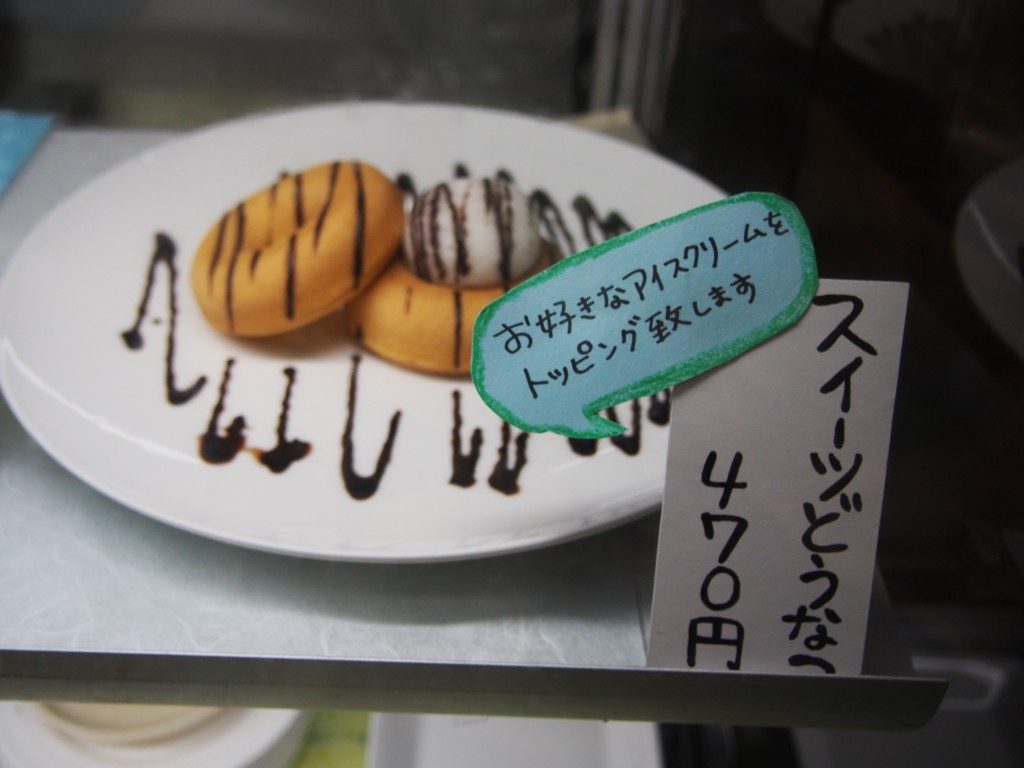 お好きなアイスクリームを
トッピング致します
スイーツどうなつ
470円